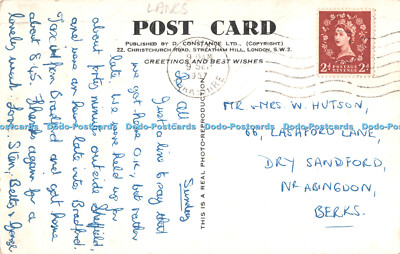 POST CARD
PUBLISHED BY D. CONSTANCE LTD., (COPYRIGHT)
22, CHRISTCHURCH ROAD, STREATHAM HILL, LONDON, S.W.2.
GREETINGS AND BEST WISHES
THIS IS A REAL PHOTO-REPRODUCTION
9 SEP
1957
POSTAGE REVENUE
2d 2d
Sunday
Dear All
Just a line to say that
we got home O.K., but rather
late. We were held up for
about forty minutes outside Sheffield,
and were an hour late into Bradford.
Taxied from Bradford and got home
about 8.45. Thanks again for a
lovely week. Love Stan, Betty &
MR & MRS W. HUTSON,
66, LASHFORD LANE,
DRY SANDFORD,
NR ABINGDON,
BERKS.
Dodo-Postcards Dodo-Postcards Dodo-Postcards Dodo-Postcards